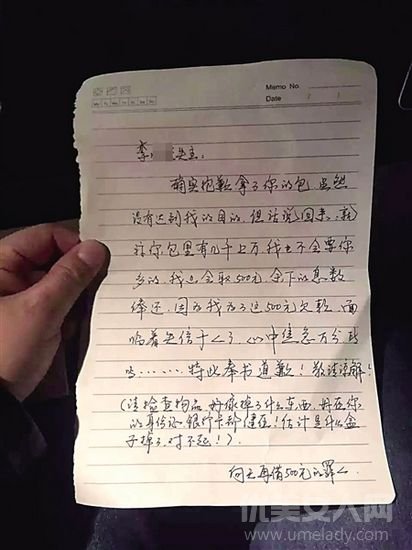 Memo No.
Date / /
Mo Tu We Th Fr Sa Su
李 失主:
确实抱歉拿了你的包,虽然
没有达到我的目的,但话说回来,就
你包里有几千上万,我也不会要你
多的,我也会取500元,余下的悉数
奉还,因为我为了这500元欠款,面
临着失信十 了,心中焦急万分
呜……特此奉书道歉!敬请谅解!
(请检查物品,好像掉了什么东西,好在你
的身份证、银行卡都健在!估计是什么盒
子掉了,对不起!).
向天再借500元的罪人
优美女人网
www.umelady.com